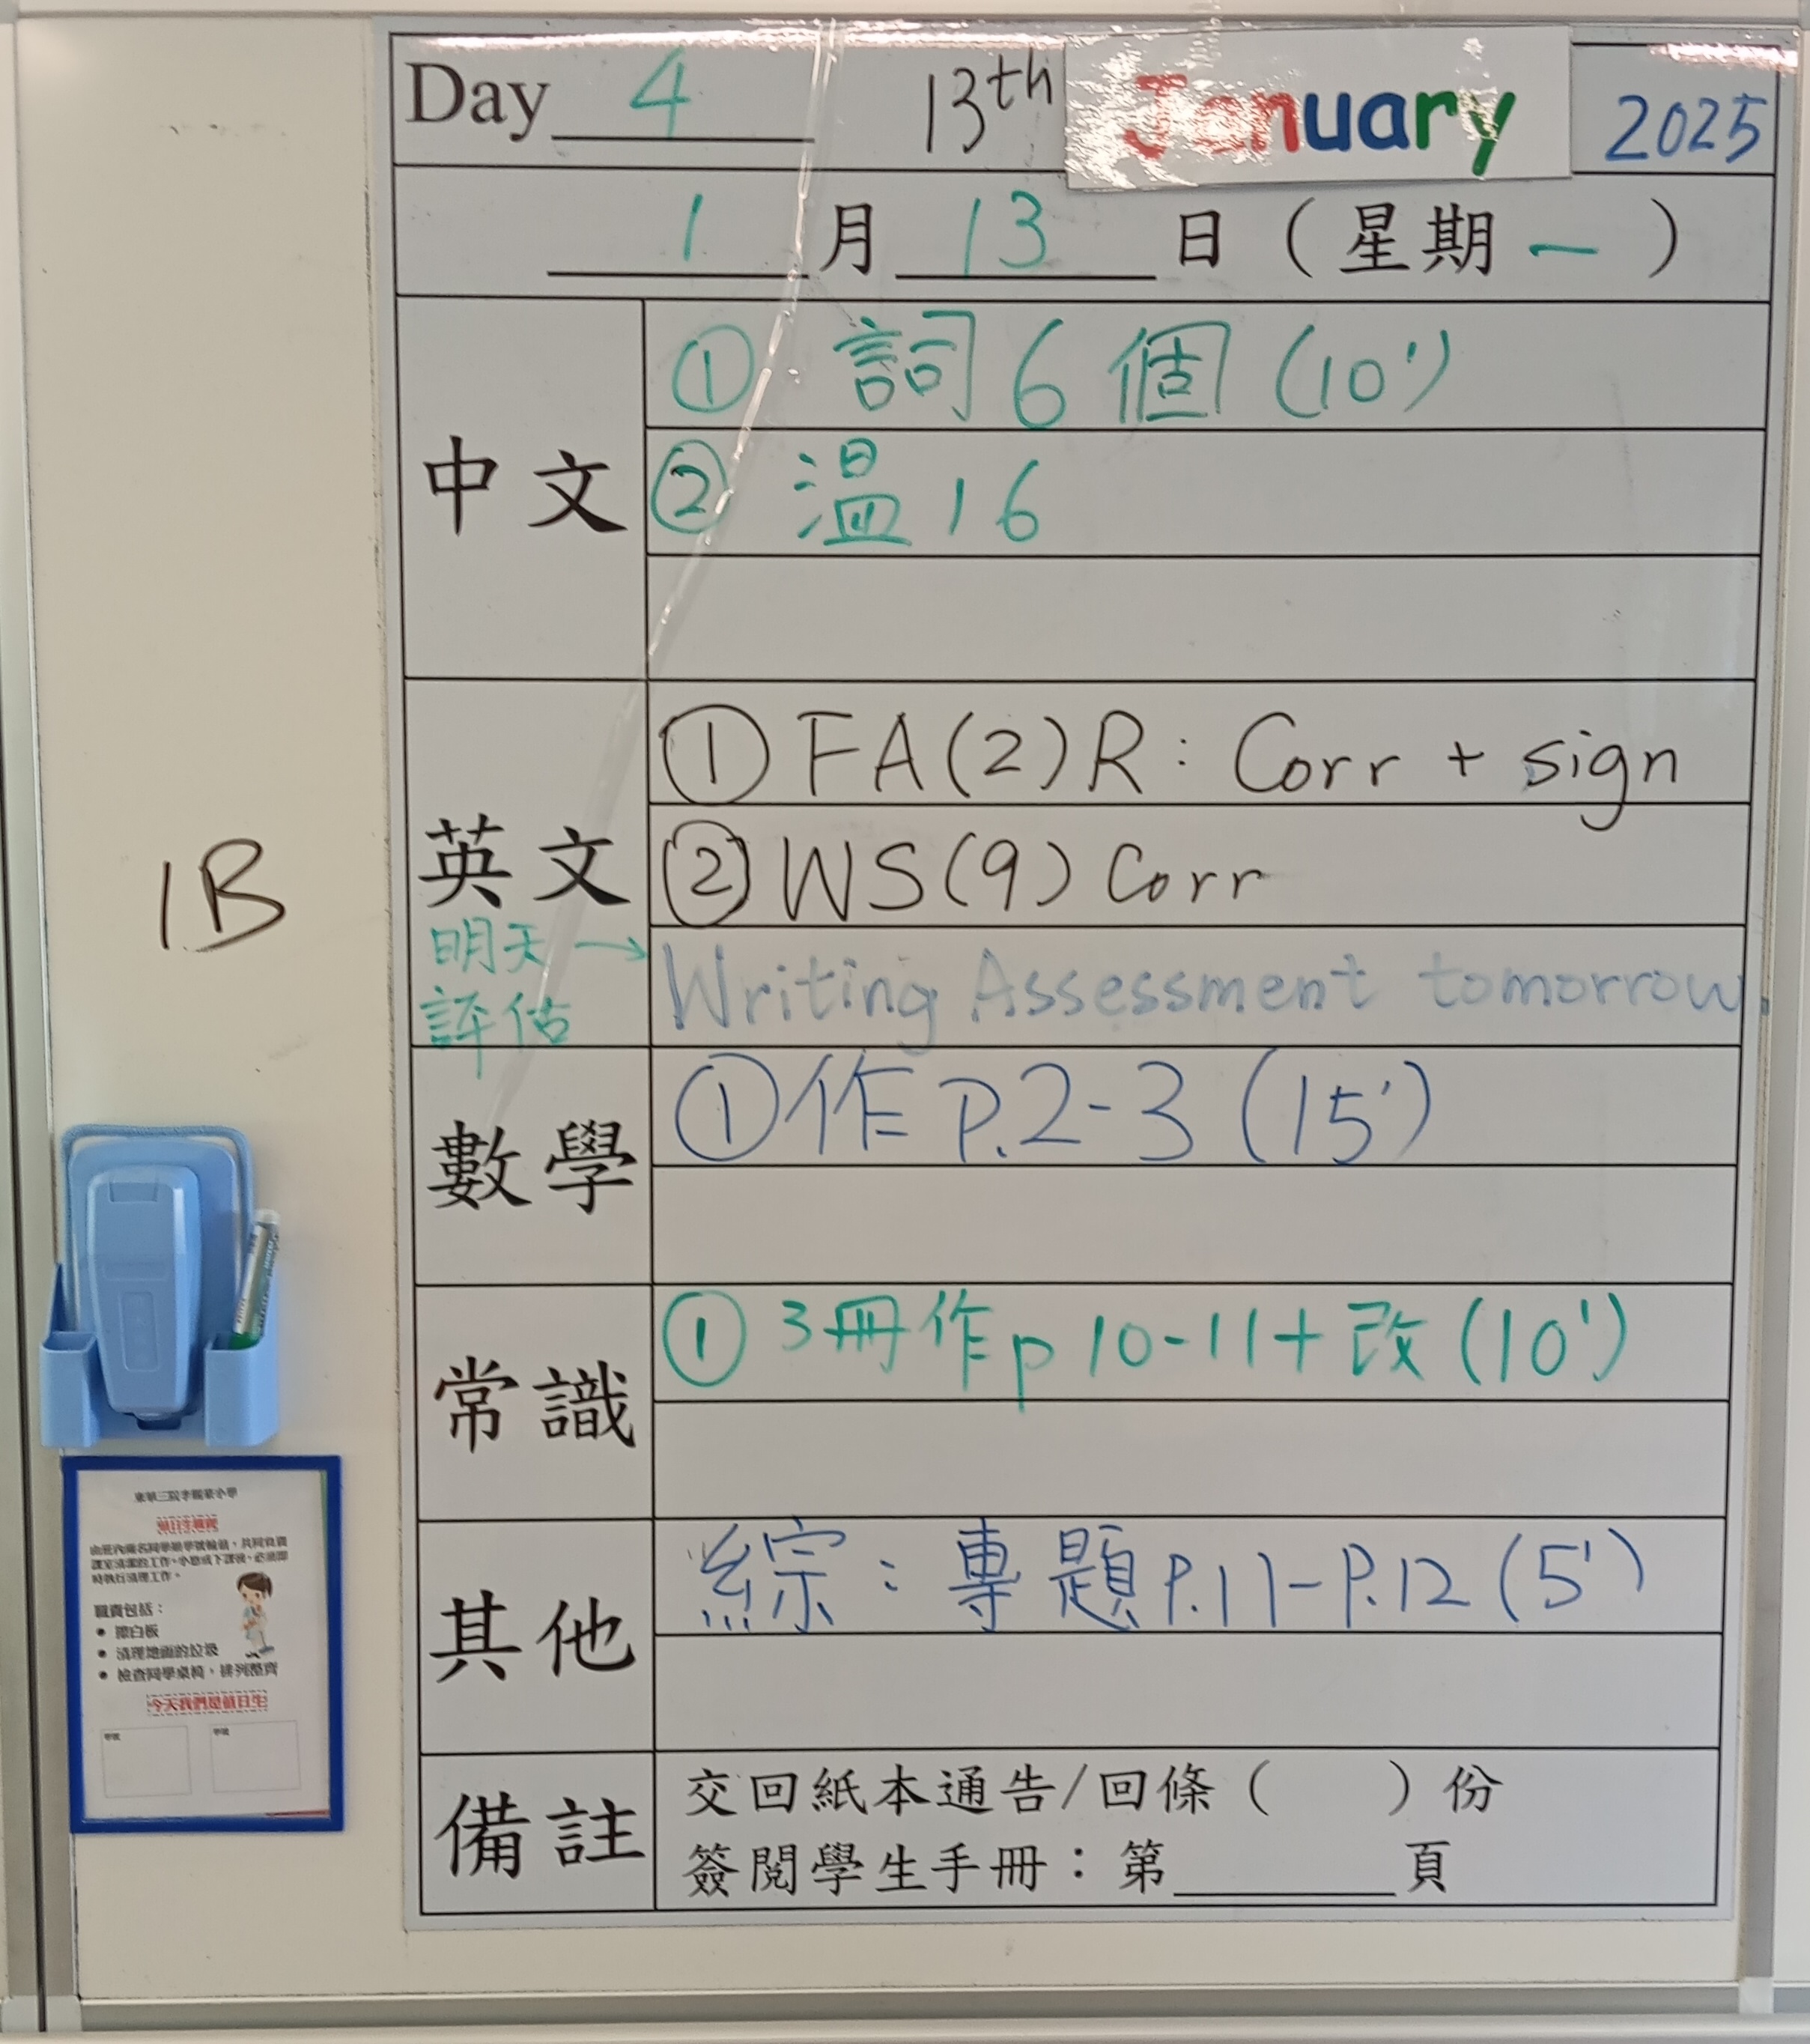 Day 4 13th January 2025
1 月 13 日 ( 星期 一 )
中文
① 詞6個 (10')
② 溫16
英文
① FA(2)R: Corr + sign
② WS(9) Corr
明天→
評估
Writing Assessment tomorrow.
數學
① 作 P.2-3 (15')
常識
① 3冊作p 10-11+改 (10')
其他
綜:專題P.11-P.12 (5')
備註
交回紙本通告/回條 ( ) 份
簽閱學生手冊:第______頁
1B
值日生職責
時執行清理工作。
職責包括:
• 擦白板
• 清理地面的垃圾
• 檢查同學桌椅,排列整齊
今天我們是值日生
學號
學號